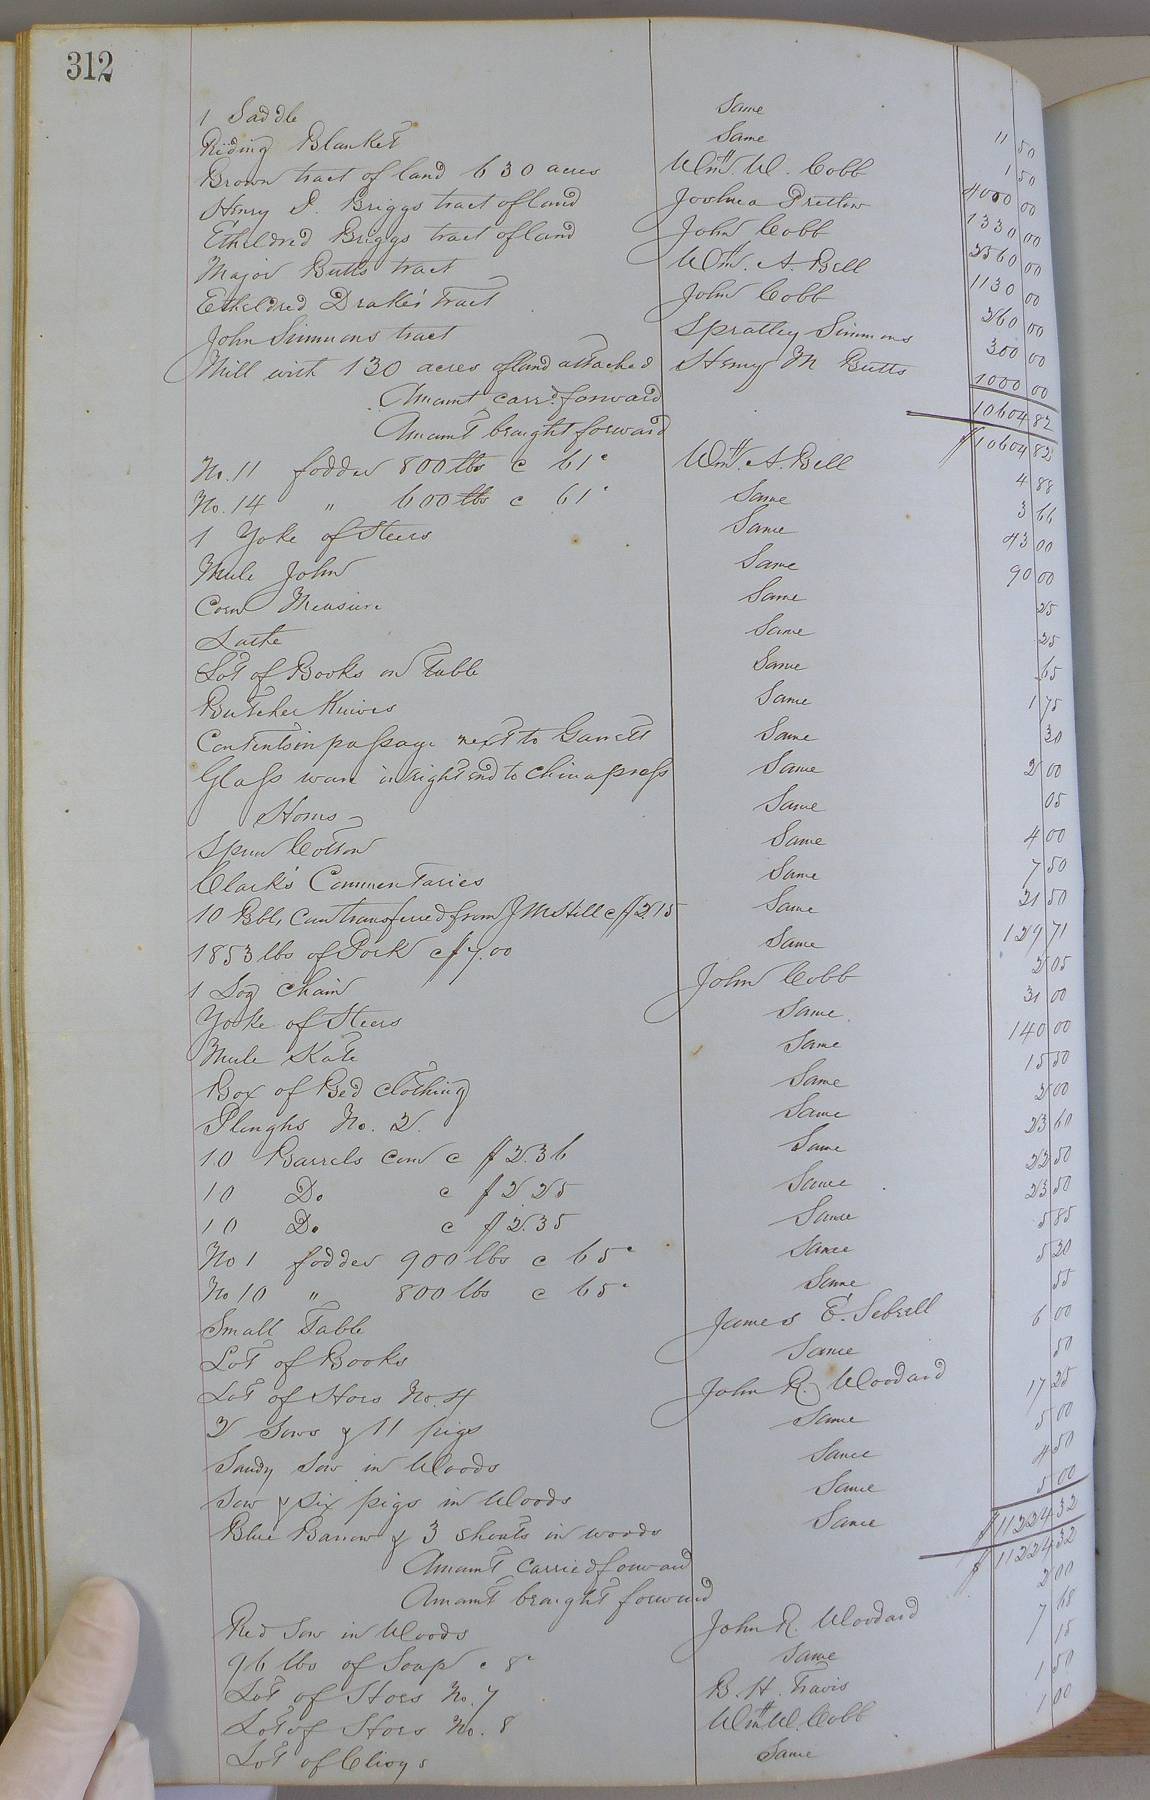 312
1 Saddle Same 11 50
Riding Blanket Same 1 50
Brown tract of land 630 acres Wm. W. Cobb 4000 00
Henry P. Briggs tract of land Joshua Pretlow 1330 00
Etheldred Briggs tract of land John Cobb 2560 00
Major Butts tract Wm. A. Bell 1130 00
Etheldred Drake's Tract John Cobb 260 00
John Simmons tract Spratley Simmons 300 00
Mill with 130 acres of land attached Henry M Butts 1000 00
Amount carrd. forward 10604 82
Amount brought forward $10604 82
No. 11 fodder 800 lbs c 61c Wm. A. Bell 4 88
No. 14 " 600 lbs c 61c Same 3 66
1 Yoke of Steers Same 43 00
Mule John Same 90 00
Corn Measure Same 25
Lathe Same 25
Lot of Books on Table Same 65
Butcher Knives Same 1 75
Contents in passage next to Garrett Same 30
Glass ware in right end to China press Same 2 00
Hoes Same 05
Spun Cotton Same 4 00
Clark's Commentaries Same 7 50
10 Bbls Corn transferred from J M Hill c $2 15 Same 21 50
1853 lbs of Pork c $7.00 Same 129 71
1 Log Chain John Cobb 2 05
Yoke of Steers Same 31 00
Mule Kate Same 140 00
Box of Bed Clothing Same 15 50
Ploughs No. 2. Same 2 00
10 Barrels corn c $2.36 Same 23 60
10 Do c $2 25 Same 22 50
10 Do c $2.35 Same 23 50
No 1 fodder 900 lbs c 65c Same 5 85
No 10 " 800 lbs c 65c Same 5 20
Small Table James E. Sebrell 55
Lot of Books Same 6 00
Lot of Hoes No. 4 John R. Woodard 50
2 Sows & 11 pigs Same 17 25
Sandy Sow in Woods Same 5 00
Sow & Six pigs in Woods Same 4 50
Blue Barrow & 3 Shoats in woods Same 5 00
Amount carried forward $11224 32
Amount brought forward $11224 32
Red Sow in Woods John R. Woodard 2 00
96 lbs of Soap c 8c Same 7 68
Lot of Hoes No. 7 B. H. Travis 15
Lot of Hoes No. 8 Wm W. Cobb 1 50
Lot of Same 1 00